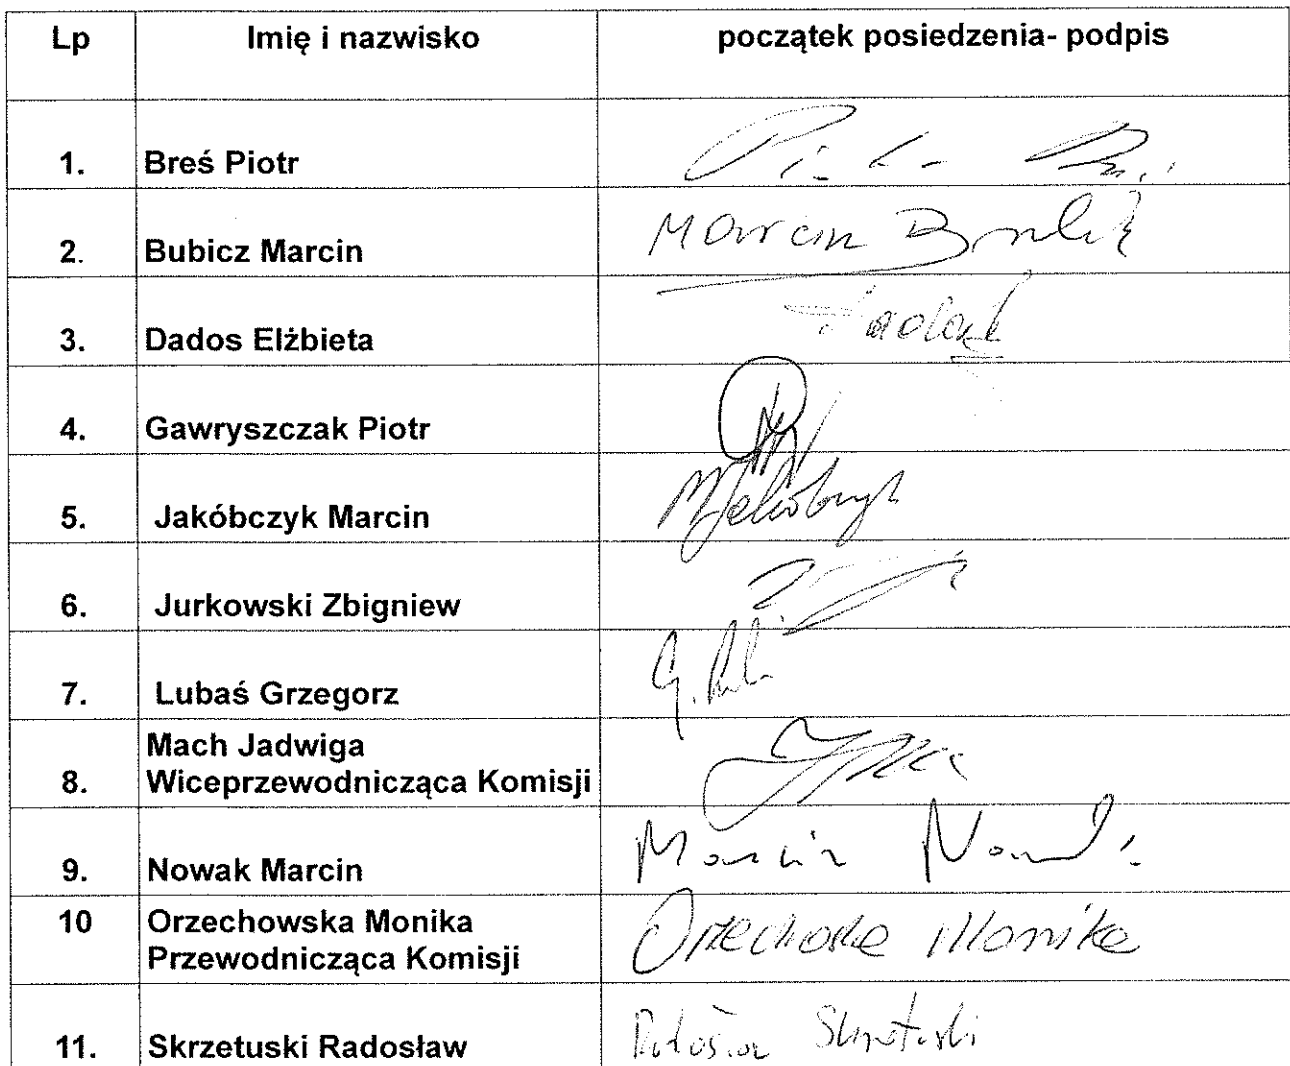 Lp Imię i nazwisko początek posiedzenia- podpis
1. Breś Piotr
2. Bubicz Marcin Marcin
3. Dados Elżbieta
4. Gawryszczak Piotr
5. Jakóbczyk Marcin
6. Jurkowski Zbigniew
7. Lubaś Grzegorz
Mach Jadwiga
8. Wiceprzewodnicząca Komisji
9. Nowak Marcin Marcin Nowak
10 Orzechowska Monika
Przewodnicząca Komisji Monika
11. Skrzetuski Radosław Radosław Skrzetuski